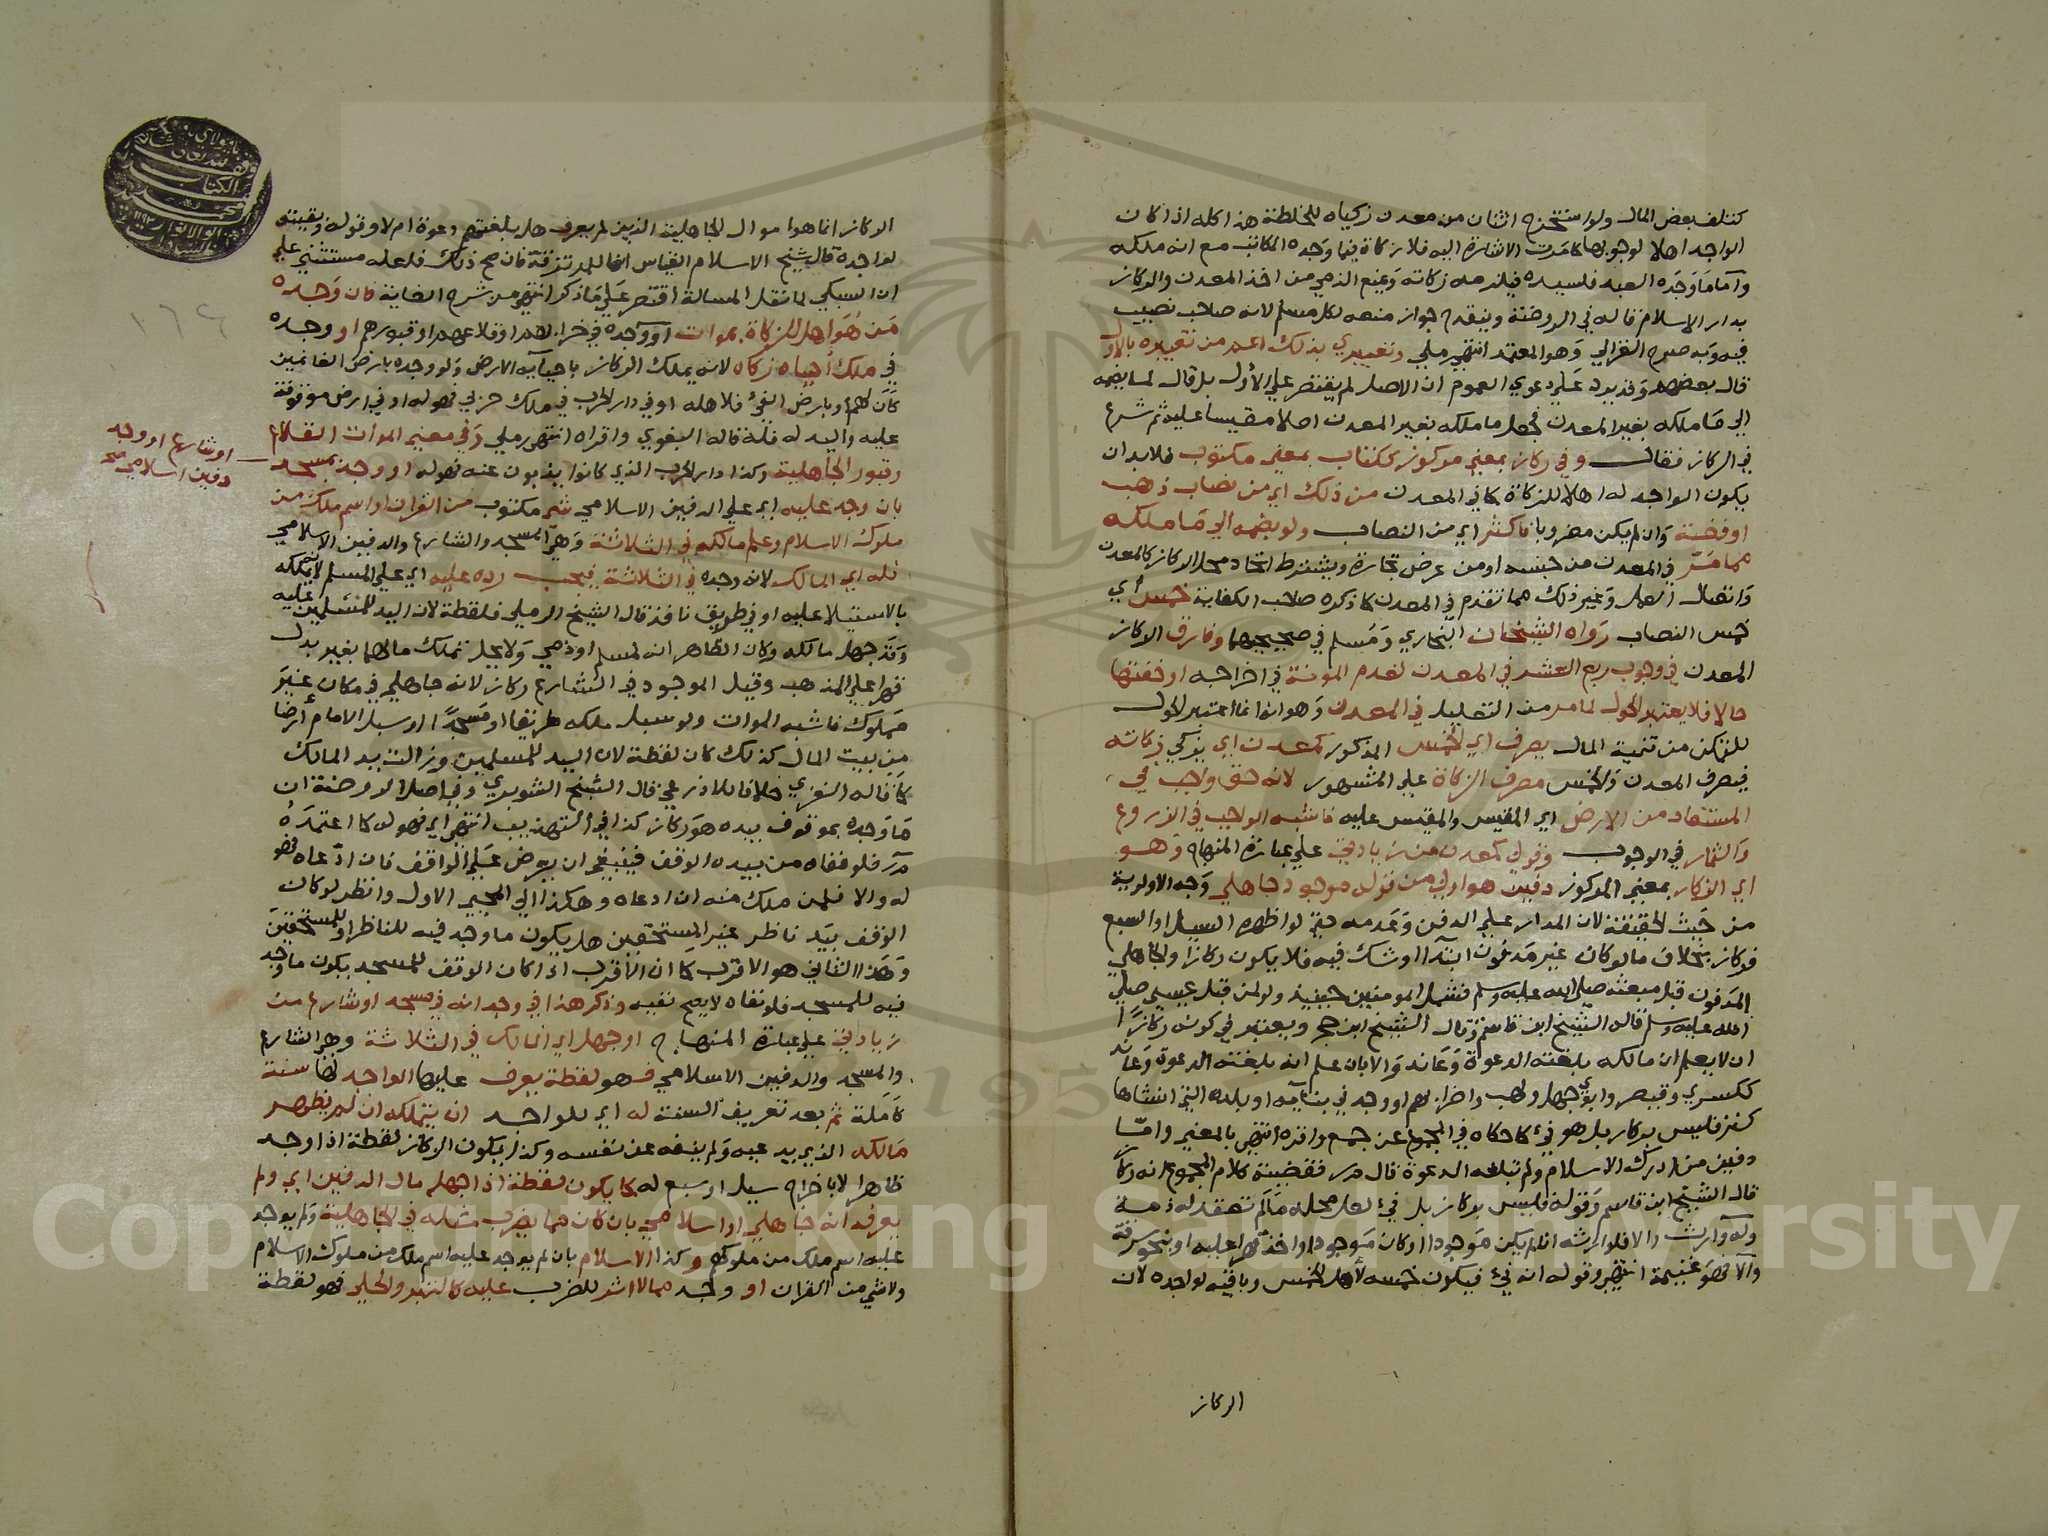 كتلف بعض المال ولو استخرج اثنان من معدن زكياه للخلطة هذا كله اذا كان
الواجد اهلا لوجوبها كما مرت الاشارة اليه فلا زكاة فيما وجده المكاتب مع انه ملكه
وأما ما وجده العبد فلسيده فيلزمه زكاته ويمنع الذمي من اخذ المعدن والركاز
بدار الاسلام قاله في الروضة وينقدح جواز منعه لكل مسلم لانه صاحب نصيب
فيه وبه صرح الغزالي وهو المعتمد انتهى رملي وتعبيري بذلك اعم من تعبيره بالاول
قال بعضهم وقد يرد على دعوى العموم ان الاصل لم يقتصر على الأول بل قال لما يضمه
الى ما ملكه بغير المعدن فجعل ما ملكه بغير المعدن اصلا مقيسا عليه ثم شرع
في الركاز فقال وفي ركاز بمعنى مركوز ككتاب بمعنى مكتوب فلا بد ان
يكون الواجد له اهلا للزكاة كما في المعدن من ذلك اي من نصاب ذهب
او فضة وان لم يكن مضروبا فاكثر اي من النصاب ولو بضمه الى ما ملكه
مما مر في المعدن من جنسه او من عرض تجارة ويشترط اتحاد محل الركاز كالمعدن
واتصال العمل وغير ذلك مما تقدم في المعدن كما ذكره صاحب الكفاية خمس أي
خمس النصاب رواه الشيخان البخاري ومسلم في صحيحيهما وفارق الركاز
المعدن في وجوب ربع العشر في المعدن لعدم المونة في اخراجه او خفتها
حالا فلا يعتبر الحول لما مر من التعليل في المعدن وهو انه انما اعتبر الحول
للتمكن من تنمية المال يصرف اي الخمس المذكور كمعدن اي يزكي زكاته
فيصرف المعدن والخمس مصرف الزكاة على المشهور لانه حق واجب في
المستفاد من الارض اي المقيس والمقيس عليه فاشبه الواجب في الزروع
والثمار في الوجوب وقولي كمعدن من زيادتي على عبارة المنهاج وهو
اي الركاز بمعنى المركوز دفين هو اولى من قوله موجود جاهلي وجه الاولوية
من حيث الحقيقة لان المدار على الدفن وعدمه حتى لو اظهره السيل او السبع
فركاز بخلاف ما لو كان غير مدفون ابتدا او شك فيه فلا يكون ركازا والجاهلي
المدفون قبل مبعثه صلى الله عليه وسلم فشمل المومنين حينئذ ولو لمن قبل عيسى صلى
الله عليه وسلم قاله الشيخ ابن قاسم وقال الشيخ ابن حجر ويعتبر في كونه ركازًا
ان لا يعلم ان مالكه بلغته الدعوة وعاند والا بان علم انه بلغته الدعوة وعاند
ككسرى وقيصر وابوي جهل ولهب واضرابهم او وجد في بنائه او بلده التي انشاها
كنز فليس بركاز بل هو فيء كما حكاه في المجموع عن جمع واقره انتهى بالمعنى وامّا
دفين من ادرك الاسلام ولم تبلغه الدعوة قال مر فقضية كلام المجموع انه ركاز
قال الشيخ ابن قاسم وقوله فليس بركاز بل فيء لعل محله ما لم تعقد له ذمة
وله وارث والا فلوارثه ان لم يكن موجودا او كان موجودا واخذ قهرا عليه او بنحو سرقة
والا فهو غنيمة انتهى وقوله انه فيء فيكون خمسه لأهل الخمس وباقيه لواجده لان
الركاز
الركاز انما هو اموال الجاهلية الذين لم يعرف هل بلغتهم دعوة ام لا وقوله وبقيته
لواجده قال شيخ الاسلام القياس انها للمرتزقة فان صح ذلك فلعله مستثنى على
ان السبكي لما نقل المسالة اقتصر على ما ذكر انتهى من شرح الغاية فان وجده
من هو اهل للزكاة بموات او وجده في خرابهم او قلاعهم او قبورهم او وجده
في ملك أحياه زكاه لانه يملك الركاز باحيائه الارض ولو وجده بارض الغانمين
كان لهم او بارض الفيء فلاهله او في دار الحرب في ملك حربي فهو له او في ارض موقوفة
عليه واليد له فله قاله البغوي واقراه انتهى رملي وفي معنى الموات القلاع
وقبور الجاهلية وكذا دار الحرب الذي كانوا يذبون عنه فهو له او وجد بمسجد
او شارع او وجد
دفين اسلامي صح
بان وجد عليه اي على الدفين الاسلامي شي مكتوب من القران او اسم ملك من
ملوك الاسلام وعلم مالكه في الثلاثة وهي المسجد والشارع والدفين الاسلامي
فله اي المالك لانه وجده في الثلاثة فيجب رده عليه اي على المسلم لا يملكه
بالاستيلا عليه او في طريق نافذ قال الشيخ الرملي فلقطة لان اليد للمسلمين عليه
وقد جهل مالكه وكان الظاهر انه لمسلم او ذمي ولا يحل تملك مالهما بغير بدل
قهرا على المذهب وقيل الموجود في الشارع ركاز لانه جاهلي في مكان غير
مملوك فاشبه الموات ولو سبل ملكه طريقا او مسجدًا او سبل الامام أرضا
من بيت المال كذلك كان لقطة لان اليد للمسلمين وزالت يد المالك
كما قاله الغزي خلافا للاذرعي قال الشيخ الشوبري وفي اصل الروضة ان
ما وجده بموقوف بيده هو ركاز كذا في التهذيب انتهى اي فهو له كما اعتمده
مر فلو نفاه من بيده الوقف فينبغي ان يعرض على الواقف فان ادعاه فهو
له والا فلمن ملك منه ان ادعاه وهكذا الى المحيي الاول وانظر لو كان
الوقف بيد ناظر غير المستحقين هل يكون ما وجد فيه للناظر او للمستحقين
وهذا الثاني هو الاقرب كما ان الاقرب اذا كان الوقف للمسجد يكون ما وجد
فيه للمسجد فلو نفاه لا يصح نفيه وذكر هذا في وجدانه في مسجد او شارع من
زيادتي على عبارة المنهاج او جهل اي المالك في الثلاثة وهي الشارع
والمسجد والدفين الاسلامي فهو لقطة يعرف عليها الواجد لها سنة
كاملة ثم بعد تعريف السنة له اي للواجد ان يتملكه ان لم يظهر
مالكه الذي يدعيه ولم ينفه عن نفسه وكذا يكون الركاز لقطة اذا وجد
ظاهرا لا باخراج سيل او سبع له كما يكون لقطة اذا جهل مال الدفين اي ولم
يعرف انه جاهلي او اسلامي بان كان مما يضرب مثله في الجاهلية ولم يوجد
عليه اسم ملك من ملوكهم وكذا الاسلام بان لم يوجد عليه اسم ملك من ملوك الاسلام
ولا شي من القران او وجد مما لا اثر للضرب عليه كالتبر والحلي فهو لقطة
Copyright © King Saud University